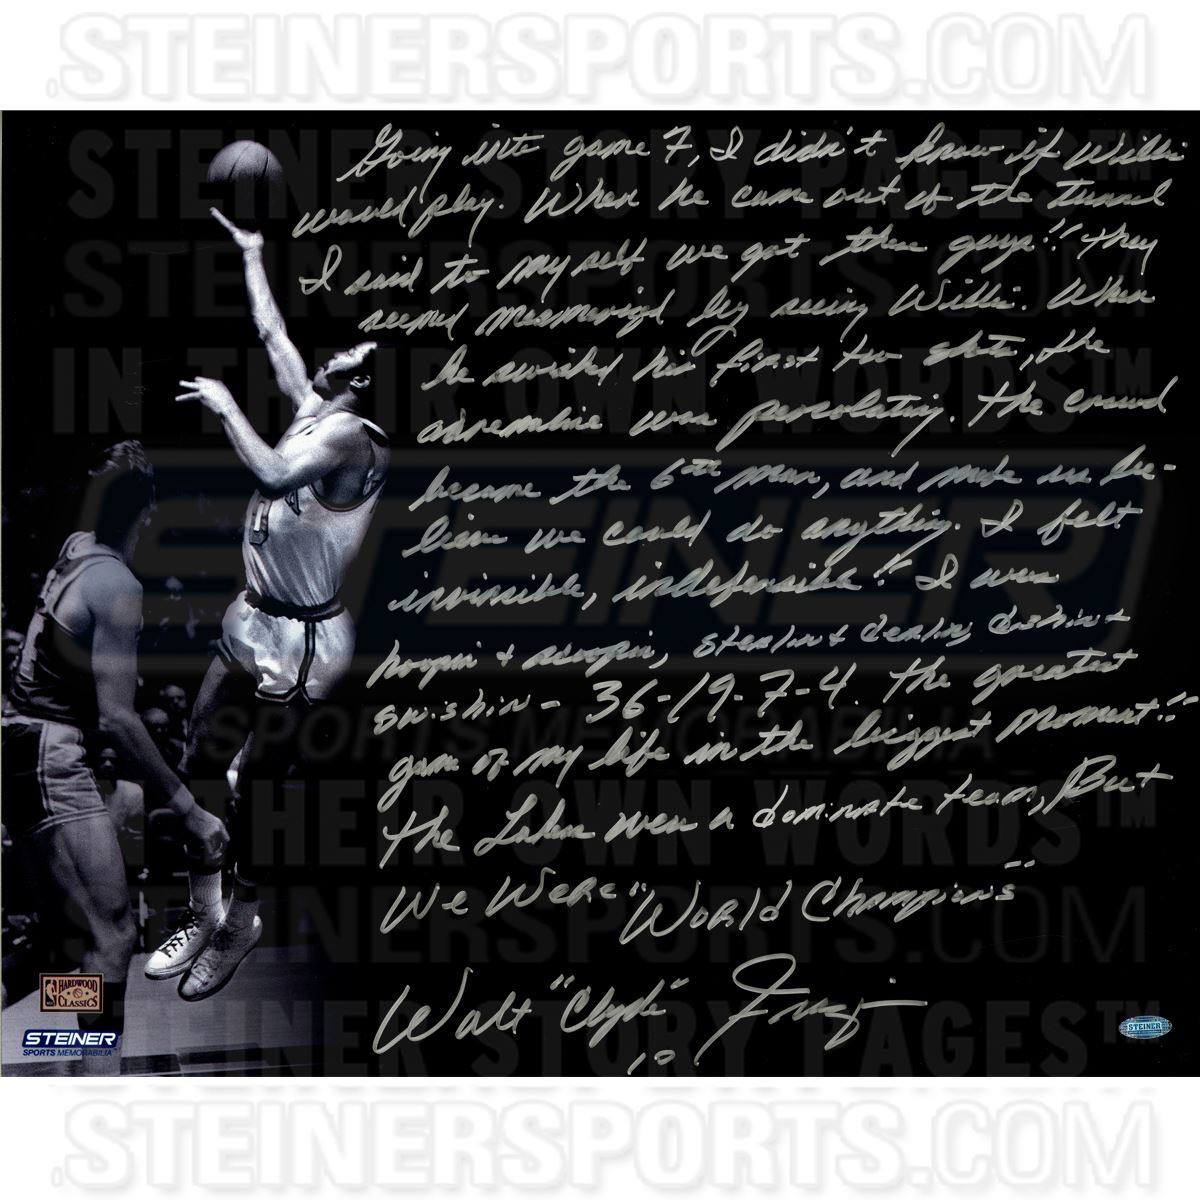 .STEINERSPORTS.COM
STEINER STORY PAGES™
.STEINERSPORTS.COM
IN THEIR OWN WORDS™
STEINER
SPORTS MEMORABILIA
IN THEIR OWN WORDS™
.STEINERSPORTS.COM
STEINER STORY PAGES™
Going into game 7, I didn't know if Willis
would play. When he came out of the tunnel
I said to myself we got these guys!! They
seemed mesmerized by seeing Willis. When
he swished his first two shots, the
adrenaline was percolating. The crowd
became the 6th man, and made us be-
lieve we could do anything. I felt
invincible, indefensible!! I was
hoopin + swoopin, stealin + dealin, dishin +
swishin - 36-19-7-4. The greatest
game of my life in the biggest moment!!
The Lakers were a dominate team, But
We Were "World Champions"
Walt "Clyde" Frazier
10
HARDWOOD
CLASSICS
STEINER
SPORTS MEMORABILIA™
STEINER
.STEINERSPORTS.COM